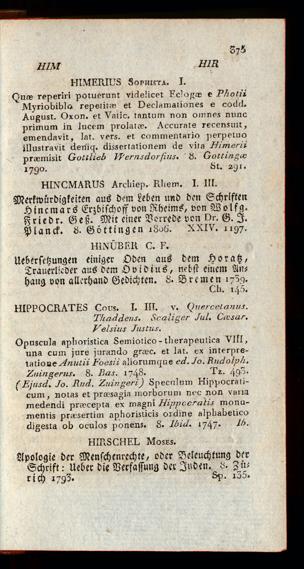 375
HIM HIR
HIMERIUS Sophista. I.
Quæ reperiri potuerunt videlicet Eclogæ e Photii
Myriobiblo repetitæ et Declamationes e codd.
August. Oxon. et Vatic. tantum non omnes nunc
primum in lucem prolatæ. Accurate recensuit,
emendavit, lat. vers. et commentario perpetuo
illustravit deniq. dissertationem de vita Himerii
præmisit Gottlieb Wernsdorfius. 8. Gottingæ
1790. St. 291.
HINCMARUS Archiep. Rhem. I. III.
Merkwürdigkeiten aus dem Leben und den Schriften
Hincmars Erzbischoff von Rheims, von Wolfg.
Friedr. Geß. Mit einer Vorrede von Dr. G. J.
Planck. 8. Göttingen 1806. XXIV. 1197.
HINÜBER C. F.
Uebersetzungen einiger Oden aus dem Horatz,
Trauerlieder aus dem Ovidius, nebst einem An-
hang von allerhand Gedichten. 8. Bremen 1759.
Ch. 145.
HIPPOCRATES Cous. I. III. v. Quercetanus.
Thaddeus. Scaliger Jul. Cæsar.
Velsius Justus.
Opuscula aphoristica Semiotico-therapeutica VIII,
una cum jure jurando græc. et lat. ex interpre-
tatione Anutii Foesii aliorumque ed. Jo. Rudolph.
Zuingerus. 8. Bas. 1748. Tz. 493.
(Ejusd. Jo. Rud. Zuingeri) Speculum Hippocrati-
cum, notas et præsagia morborum nec non varia
medendi præcepta ex magni Hippocratis monu-
mentis præsertim aphoristicis ordine alphabetico
digesta ob oculos ponens. 8. Ibid. 1747. Ib.
HIRSCHEL Moses.
Apologie der Menschenrechte, oder Beleuchtung der
Schrift: Ueber die Verfassung der Juden. 8. Zü-
rich 1793. Sp. 135.